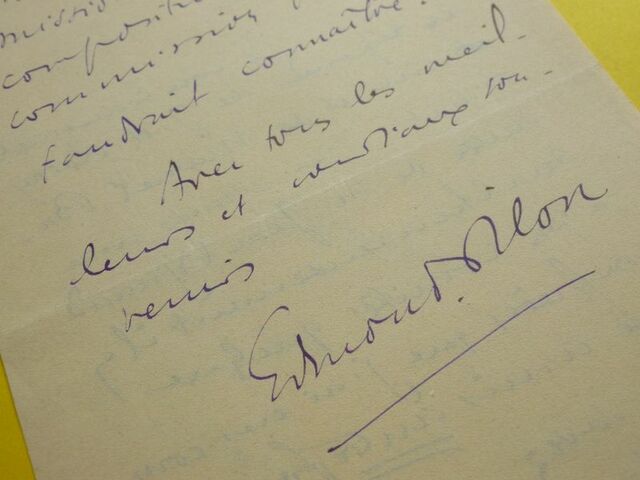 missio
compositio
commission
faudrait connaître.
Avec tous les meil-
leurs et cordiaux sou-
venirs
Edmond Pilon